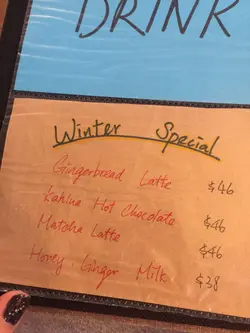 DRINK
Winter Special
Gingerbread Latte $46
Kahlua Hot Chocolate $46
Matcha Latte $46
Honey Ginger Milk $38